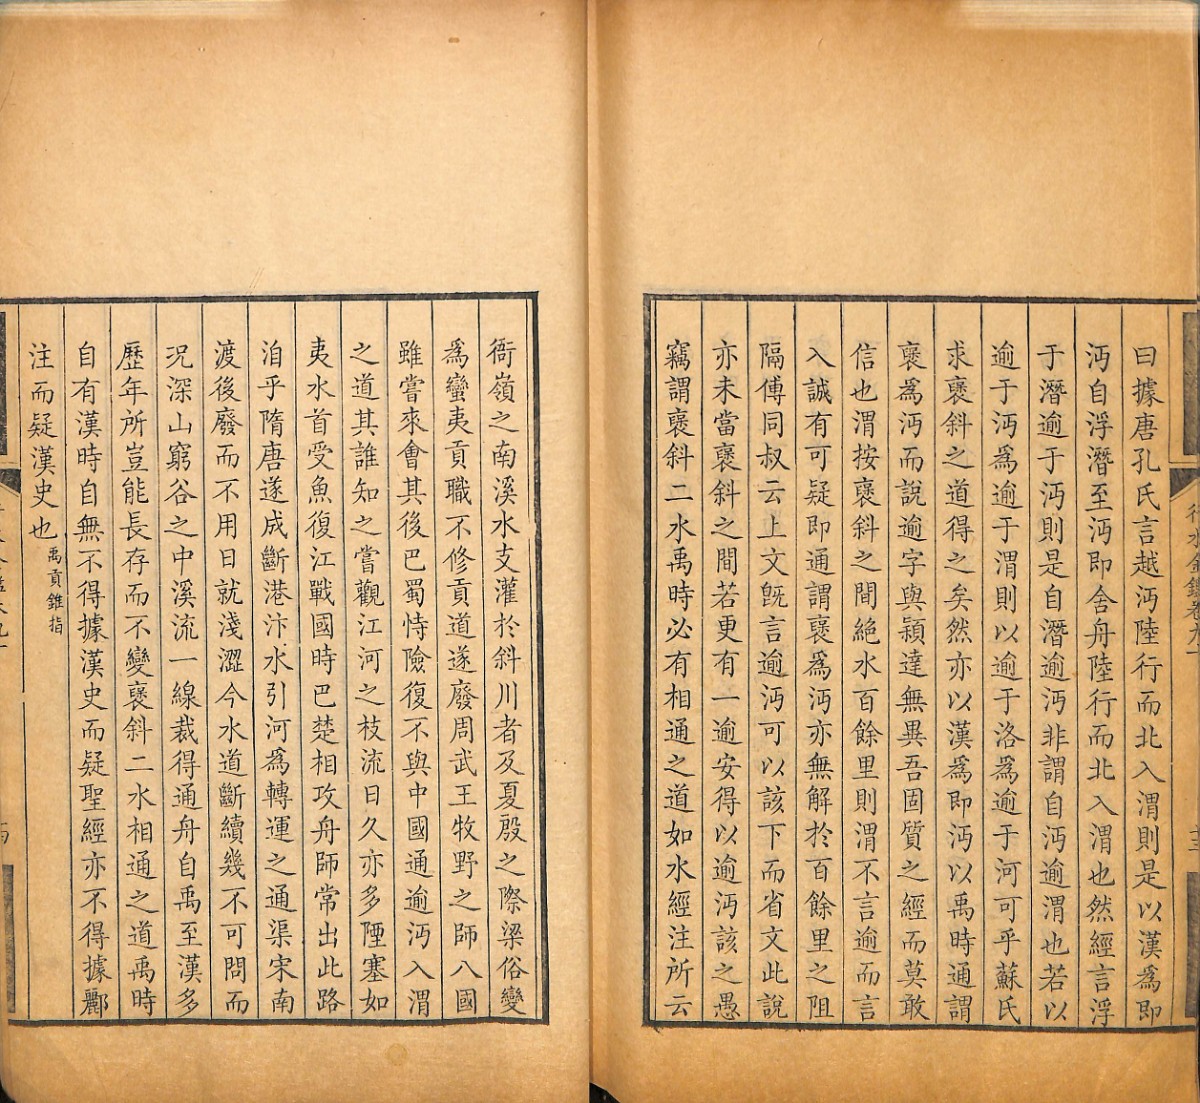 曰據唐孔氏言越沔陸行而北入渭則是以漢為即
沔自浮潛至沔即舍舟陸行而北入渭也然經言浮
于潛逾于沔則是自潛逾沔非謂自沔逾渭也若以
逾于沔為逾于渭則以逾于洛為逾于河可乎蘇氏
求褒斜之道得之矣然亦以漢為即沔以禹時通謂
褒為沔而說逾字與穎達無異吾固質之經而莫敢
信也渭按褒斜之間絕水百餘里則渭不言逾而言
入誠有可疑即通謂褒為沔亦無解於百餘里之阻
隔傅同叔云上文旣言逾沔可以該下而省文此說
亦未當褒斜之間若更有一逾安得以逾沔該之愚
竊謂褒斜二水禹時必有相通之道如水經注所云
衙嶺之南溪水支灌於斜川者及夏殷之際梁俗變
為蠻夷貢職不修貢道遂廢周武王牧野之師八國
雖嘗來會其後巴蜀恃險復不與中國通逾沔入渭
之道其誰知之嘗觀江河之枝流日久亦多陻塞如
夷水首受魚復江戰國時巴楚相攻舟師常出此路
洎乎隋唐遂成斷港汴水引河為轉運之通渠宋南
渡後廢而不用日就淺澀今水道斷續幾不可問而
况深山窮谷之中溪流一線裁得通舟自禹至漢多
歷年所豈能長存而不變褒斜二水相通之道禹時
自有漢時自無不得據漢史而疑聖經亦不得據酈
注而疑漢史也禹貢錐指